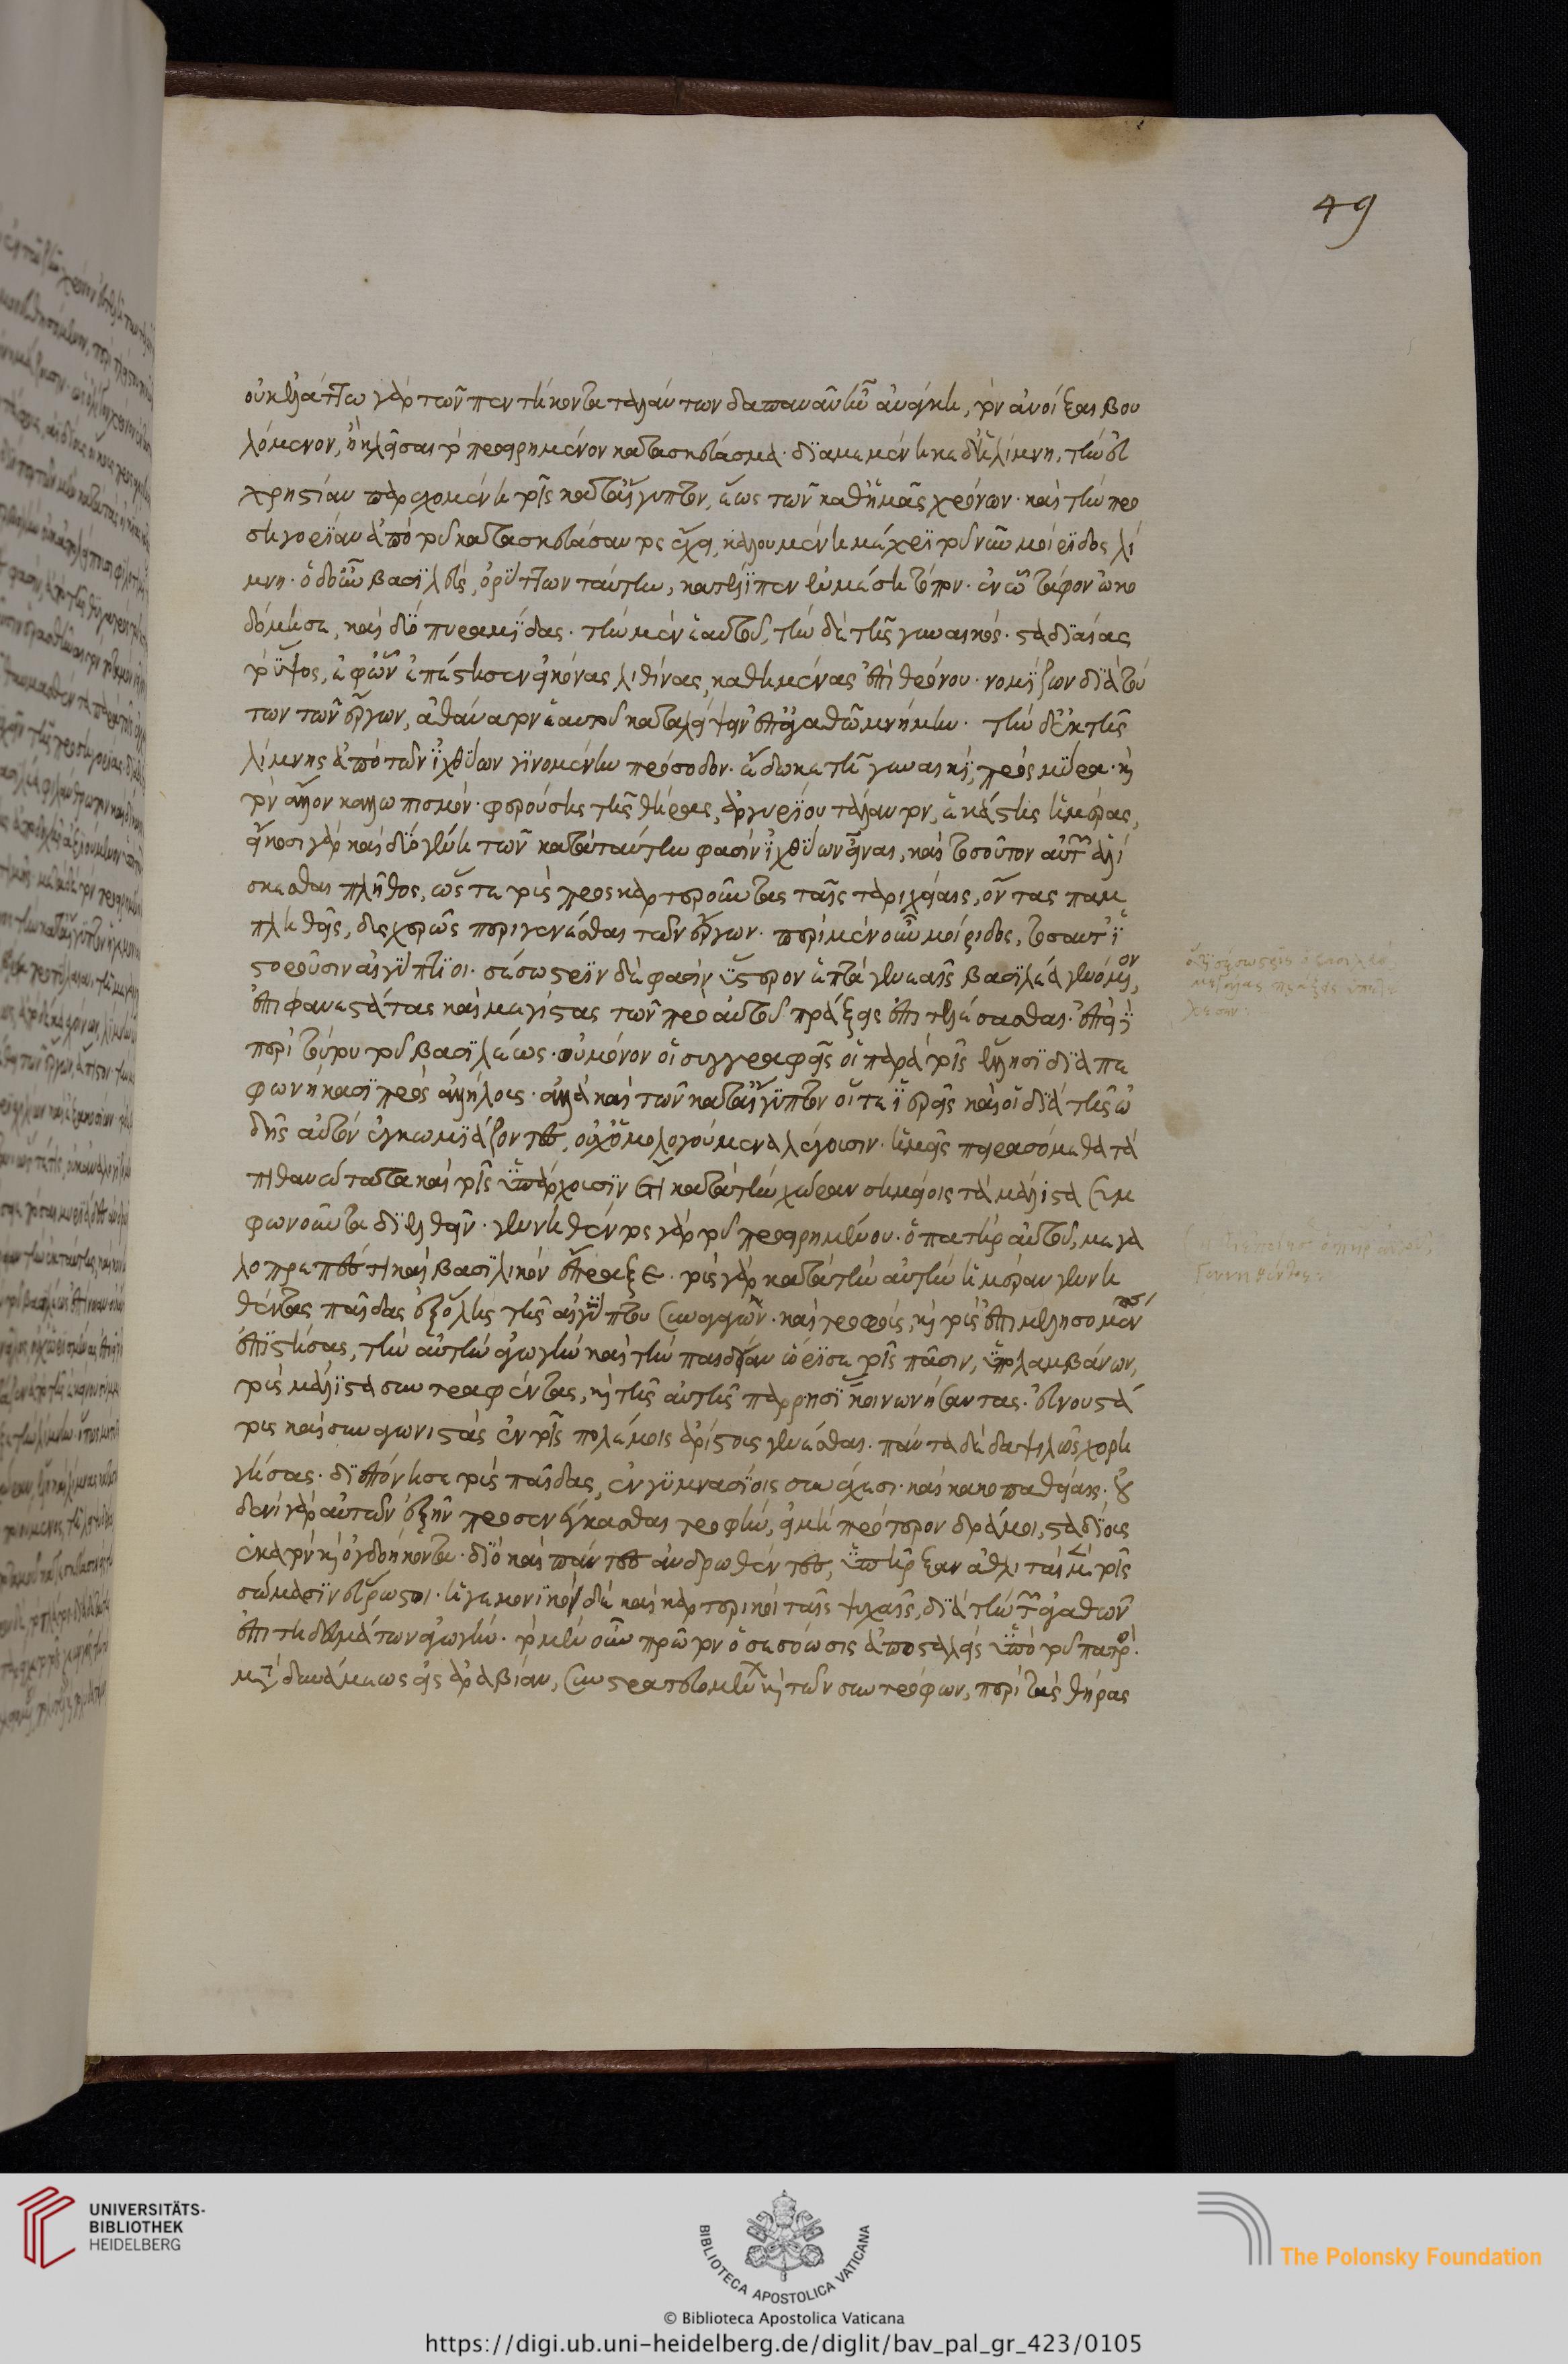 οὐκ ἐλάττω γὰρ τῶν πεντήκοντα ταλάντων δαπανᾶν ἦν ἀνάγκη, τὸν ἀνοίξαι βου
λόμενον, ἢ κλεῖσαι τὸ προειρημένον κατασκεύασμα· διαμεμένηκε δ' ἡ λίμνη, τὴν εὐ
χρηστίαν παρεχομένη τοῖς κατ' αἴγυπτον, ἕως τῶν καθ' ἡμᾶς χρόνων· καὶ τὴν προ
σηγορίαν ἀπὸ τοῦ κατασκευάσαντος ἔχει, καλουμένη μέχρι τοῦ νῦν μοίριδος λί
μνη· ὁ δ' οὖν βασιλεὺς, ὀρύττων ταύτην, κατέλιπεν ἐν μέσῃ τόπον· ἐν ᾧ τάφον ὠκο
δόμησε, καὶ δύο πυραμίδας· τὴν μὲν ἑαυτοῦ, τὴν δὲ τῆς γυναικός· σταδιαίας
τὸ ὕψος, ἐφ' ὧν ἐπέστησεν εἰκόνας λιθίνας, καθημένας ἐπὶ θρόνου· νομίζων διὰ τού
των τῶν ἔργων, ἀθάνατον ἑαυτοῦ καταλείψειν ἐπ' ἀγαθῶ μνήμην· τὴν δ' ἐκ τῆς
λίμνης ἀπὸ τῶν ἰχθύων γινομένην πρόσοδον· ἔδωκε τῇ γυναικὶ, πρὸς μύρα· κὶ
τὸν ἄλλον καλλωπισμόν· φερούσης τῆς θήρας, ἀργυρίου τάλαντον, ἑκάστης ἡμέρας,
εἴκοσι γὰρ καὶ δύο γένη τῶν κατὰ ταύτην φασὶν ἰχθύων εἶναι, καὶ τοσοῦτον αὐτῶν ἁλί
σκεσθαι πλῆθος, ὥστε τοὺς προσκαρτεροῦντας ταῖς ταριχείαις, ὄντας παμ
πληθεῖς, δυσχερῶς περιγενέσθαι τῶν ἔργων· περὶ μὲν οὖν μοίριδος, τοσαῦτ' ἱ
στοροῦσιν αἰγύπτιοι· σέσωστριν δὲ φασὶν ὕστερον ἑπτὰ γενεαῖς βασιλέα γενόμενον,
ἐπιφανεστάτας καὶ μεγίστας τῶν πρὸ αὐτοῦ πράξεις ἐπιτελέσασθαι· ἐπεὶ
περὶ τούτου τοῦ βασιλέως· οὐ μόνον οἱ συγγραφεῖς οἱ παρὰ τοῖς ἕλλησι διαπε
φωνήκασι πρὸς ἀλλήλους· ἀλλὰ καὶ τῶν κατ' αἴγυπτον οἵτε ἱερεῖς καὶ οἱ διὰ τῆς ὠ
δῆς αὐτὸν ἐγκωμιάζοντες, οὐχ ὁμολογούμενα λέγουσιν· ἡμεῖς πειρασόμεθα τὰ
πιθανώτατα καὶ τοῖς ὑπάρχουσιν ἔτι κατὰ τὴν χώραν σημείοις τὰ μάλιστα συμ
φωνοῦντα διελθεῖν· γεννηθέντος γὰρ τοῦ προειρημένου· ὁ πατὴρ αὐτοῦ, μεγα
λοπρεπές τι καὶ βασιλικὸν ἔπραξε· τοὺς γὰρ κατὰ τὴν αὐτὴν ἡμέραν γεννη
θέντας παῖδας ἐξ ὅλης τῆς αἰγύπτου συναγαγὼν· καὶ τροφοὺς, κὶ τοὺς ἐπιμελησομένους
ἐπιστήσας, τὴν αὐτὴν ἀγωγὴν καὶ τὴν παιδείαν ὥρισε τοῖς πᾶσιν, ὑπολαμβάνων,
τοὺς μάλιστα συντραφέντας, κὶ τῆς αὐτῆς παρρησίας κοινωνήσαντας· εὐνουστά
τους καὶ συναγωνιστὰς ἐν τοῖς πολέμοις ἀρίστους γενέσθαι· πάντα δὲ δαψιλῶς χορη
γήσας· διεπόνησε τοὺς παῖδας, ἐν γυμνασίοις συνεχέσι· καὶ κακοπαθείαις· οὐ
δενὶ γὰρ αὐτῶν ἐξῆν προσενέγκασθαι τροφὴν, εἰ μὴ πρότερον δράμοι, σταδίους
ἑκατὸν κὶ ὀγδοήκοντα· διὸ καὶ πάντες ἀνδρωθέντες, ὑπῆρξαν ἀθληταὶ μὲν τοῖς
σώμασιν εὔρωστοι· ἡγεμονικοὶ δὲ καὶ καρτερικοὶ ταῖς ψυχαῖς, διὰ τὴν τῶν ἀγαθῶν
ἐπιτηδευμάτων ἀγωγήν· τὸ μὲν οὖν πρῶτον ὁ σεσόωσις ἀποσταλεὶς ὑπὸ τοῦ πατρὸς·
μετὰ δυνάμεως εἰς ἀραβίαν, συστρατευομένων κὶ τῶν συντρόφων, περὶ τὰς θήρας
49
UNIVERSITÄTS-
BIBLIOTHEK
HEIDELBERG
BIBLIOTECA APOSTOLICA VATICANA
© Biblioteca Apostolica Vaticana
The Polonsky Foundation
https://digi.ub.uni-heidelberg.de/diglit/bav_pal_gr_423/0105